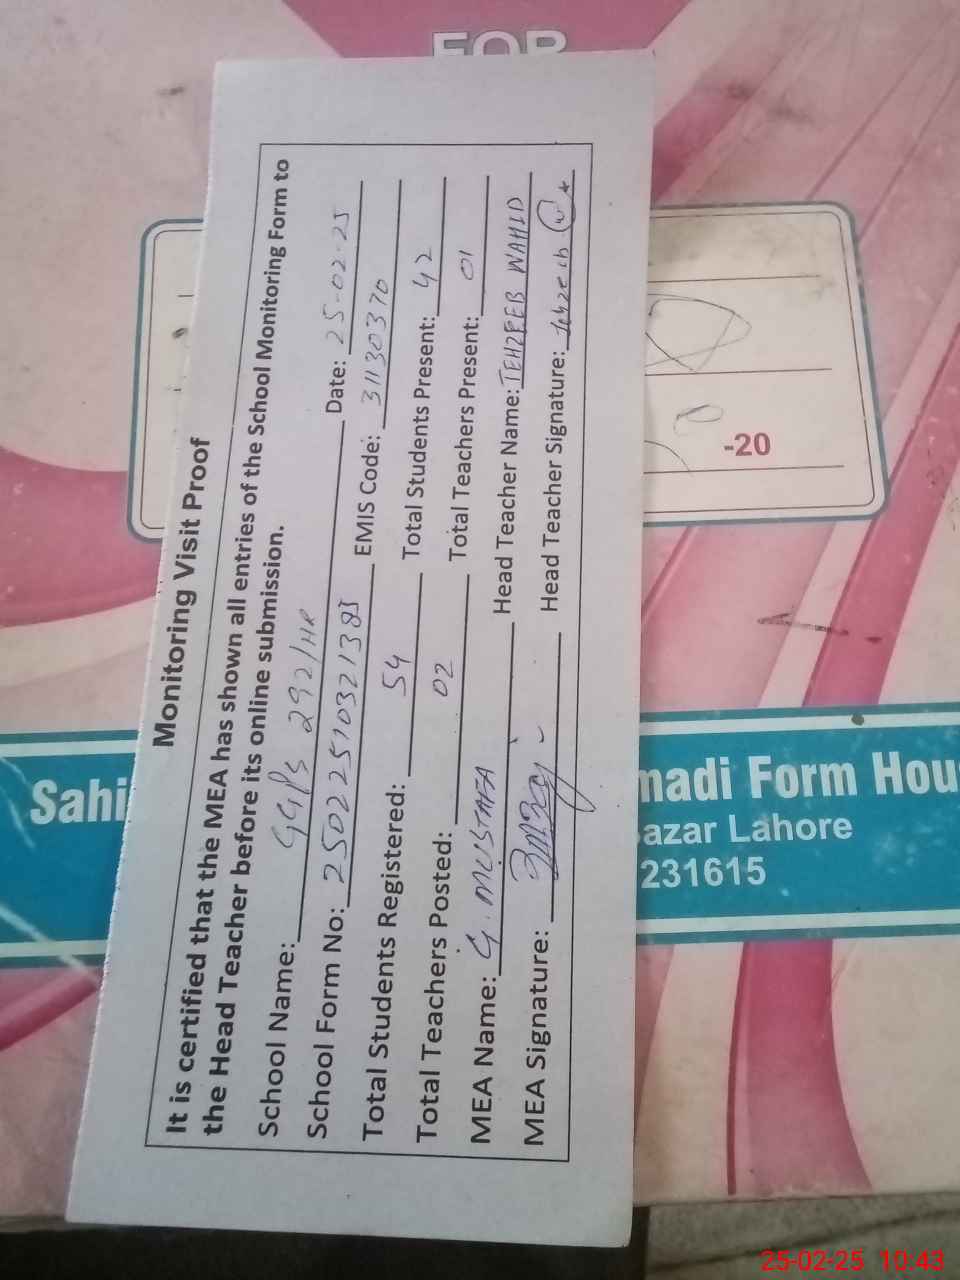 FOR
Monitoring Visit Proof
It is certified that the MEA has shown all entries of the School Monitoring Form to
the Head Teacher before its online submission.
School Name: GGPS 292/HR Date: 25-02-25
School Form No: 25022251032138 EMIS Code: 31130370
Total Students Registered: 54 Total Students Present: 42
Total Teachers Posted: 02 Total Teachers Present: 01
MEA Name: G. MUSTAFA Head Teacher Name: TEHZEEB WAHID
MEA Signature: Head Teacher Signature:
-20
Sahi
madi Form Hou
azar Lahore
231615
25-02-25 10:43